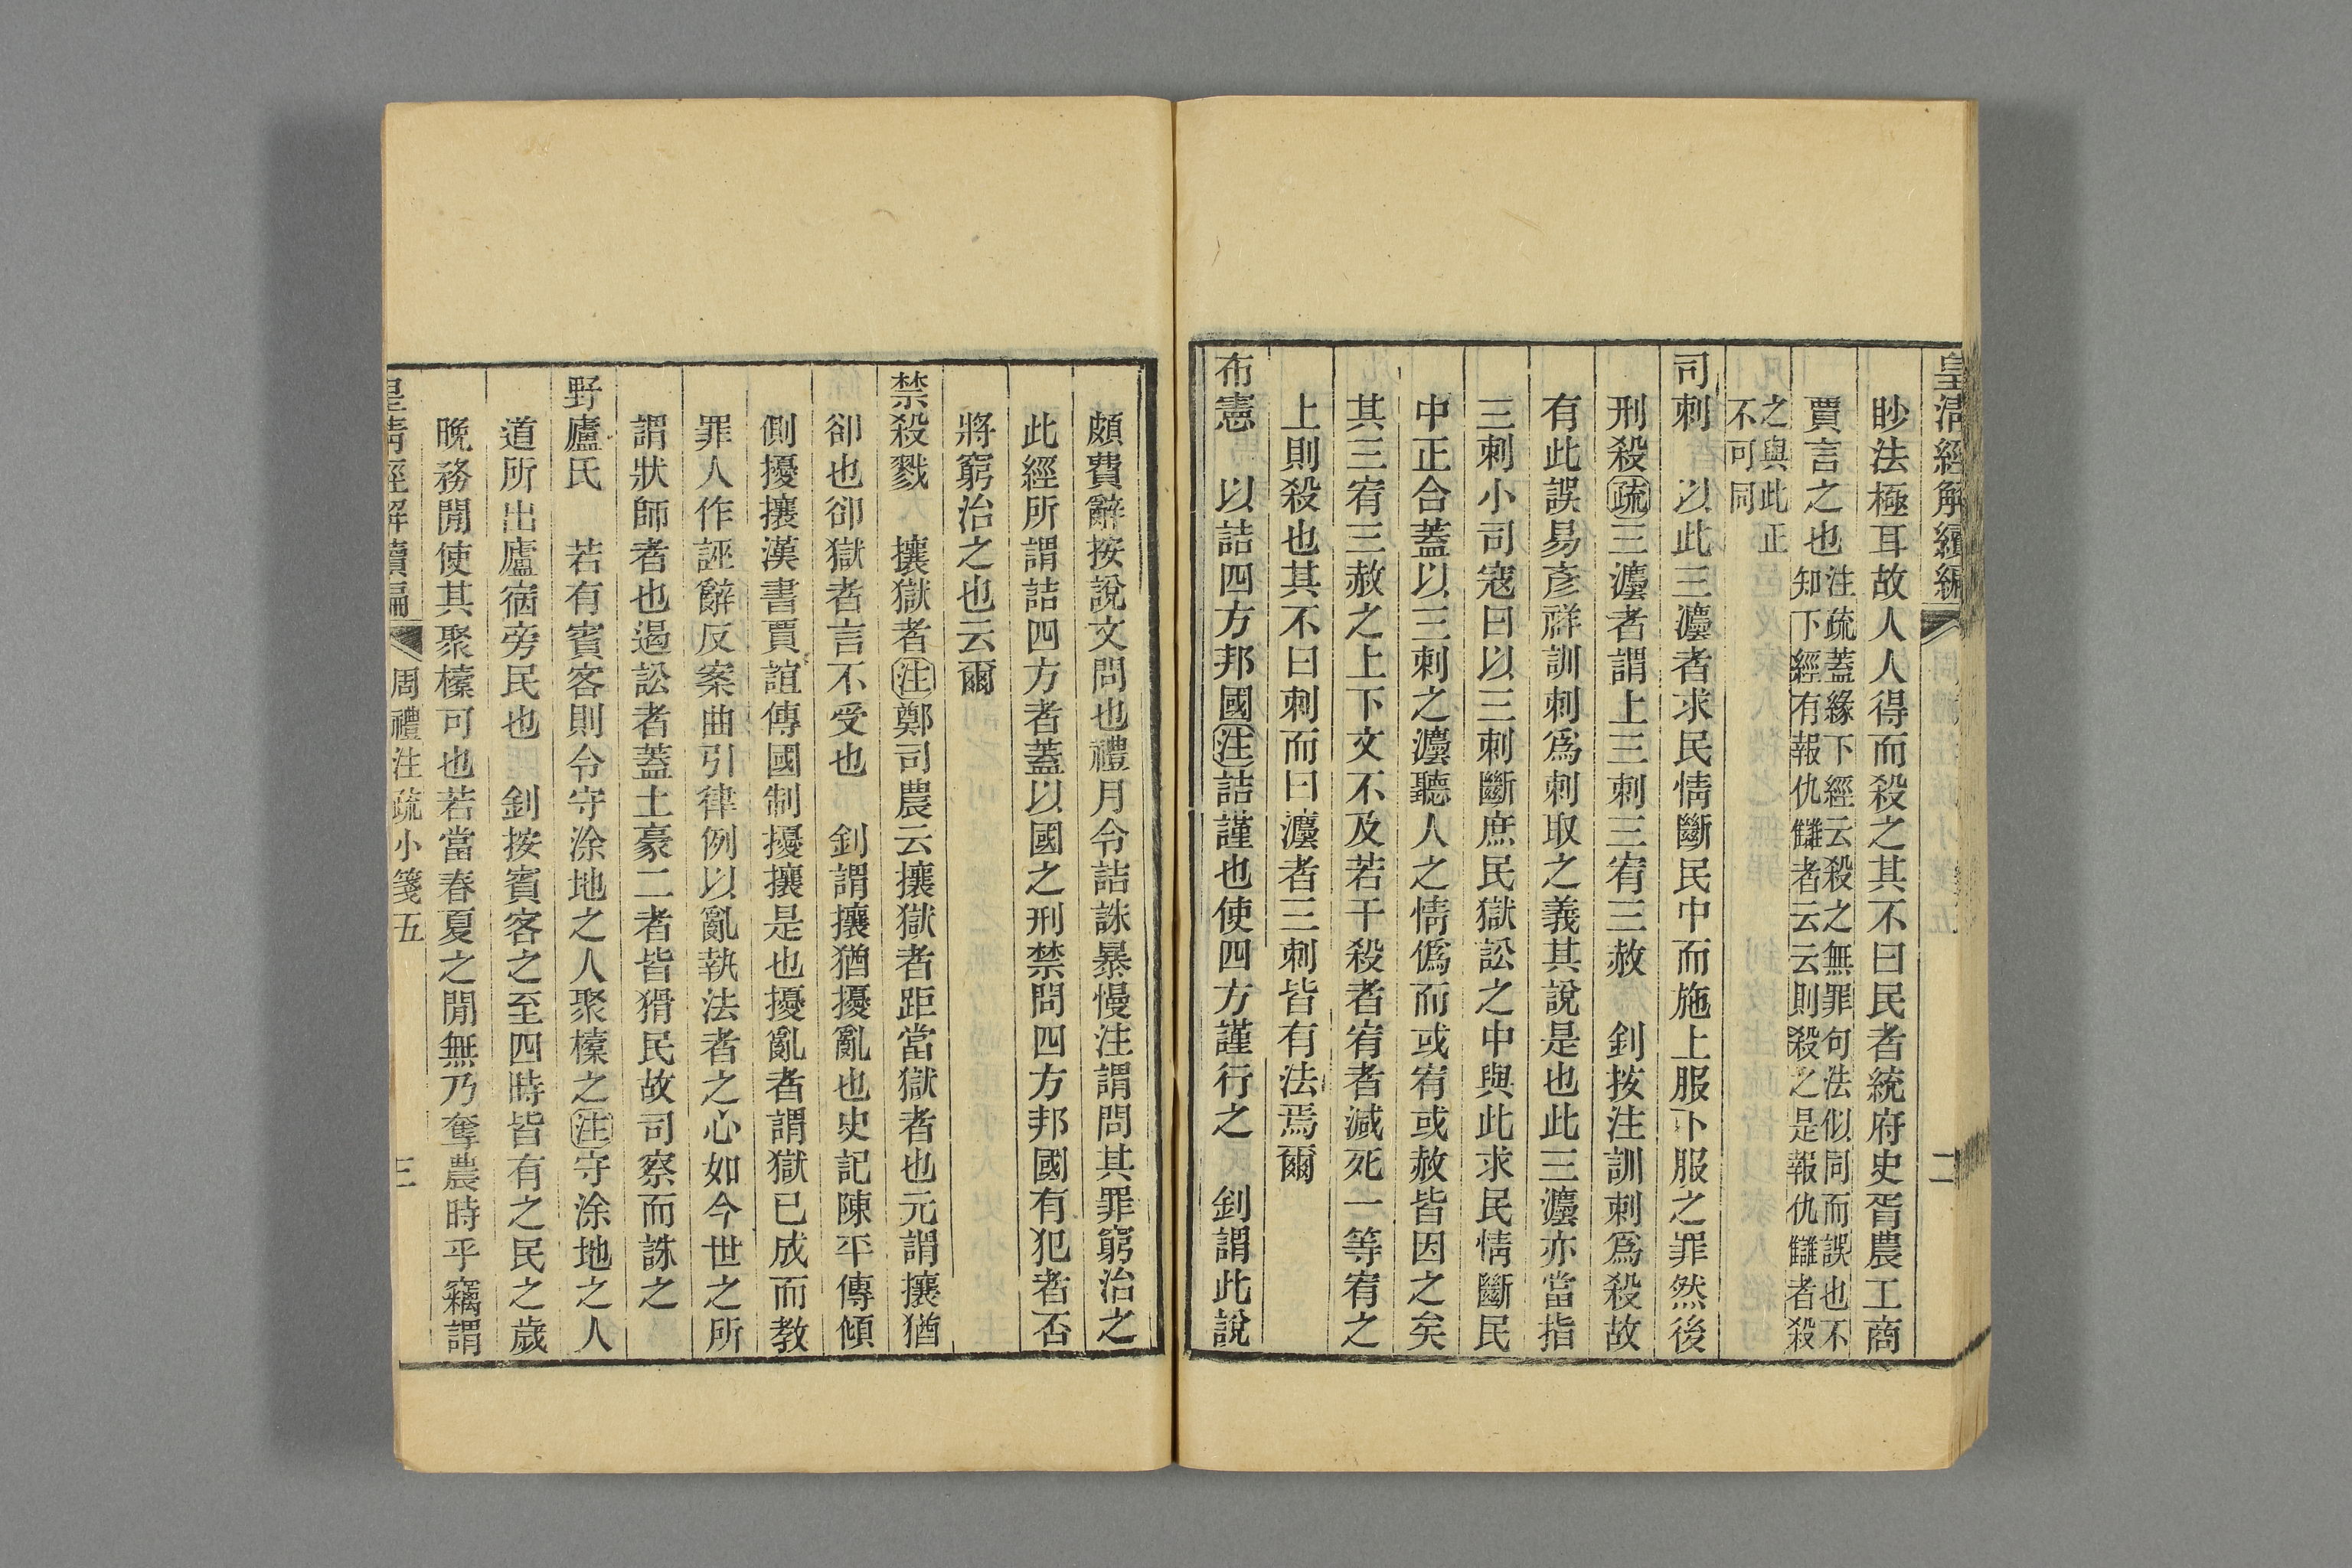 皇清經解續編 二
眇法極耳故人人得而殺之其不曰民者統府史胥農工商
賈言之也注疏蓋緣下經云殺之無罪句法似同而誤也不
知下經有報仇讎者云云則殺之是報仇讎者殺
之與此正
不可同
司刺 以此三灋者求民情斷民中而施上服下服之罪然後
刑殺疏三灋者謂上三刺三宥三赦 釗按注訓刺爲殺故
有此誤易彥祥訓刺爲刺取之義其說是也此三灋亦當指
三刺小司寇曰以三刺斷庶民獄訟之中與此求民情斷民
中正合蓋以三刺之灋聽人之情僞而或宥或赦皆因之矣
其三宥三赦之上下文不及若干殺者宥者減死一等宥之
上則殺也其不曰刺而曰灋者三刺皆有法焉爾
布憲 以詰四方邦國注詰謹也使四方謹行之 釗謂此說
頗費辭按說文問也禮月令詰誅暴慢注謂問其罪窮治之
此經所謂詰四方者蓋以國之刑禁問四方邦國有犯者否
將窮治之也云爾
禁殺戮 攘獄者注鄭司農云攘獄者距當獄者也元謂攘猶
卻也卻獄者言不受也 釗謂攘猶擾亂也史記陳平傳傾
側擾攘漢書賈誼傳國制擾攘是也擾亂者謂獄已成而教
罪人作誣辭反案曲引律例以亂執法者之心如今世之所
謂狀師者也遏訟者蓋土豪二者皆猾民故司察而誅之
野廬氏 若有賓客則令守涂地之人聚㯳之注守涂地之人
道所出廬宿旁民也 釗按賓客之至四時皆有之民之歲
晚務閒使其聚㯳可也若當春夏之閒無乃奪農時乎竊謂
皇清經解續編 周禮注疏小箋五 三